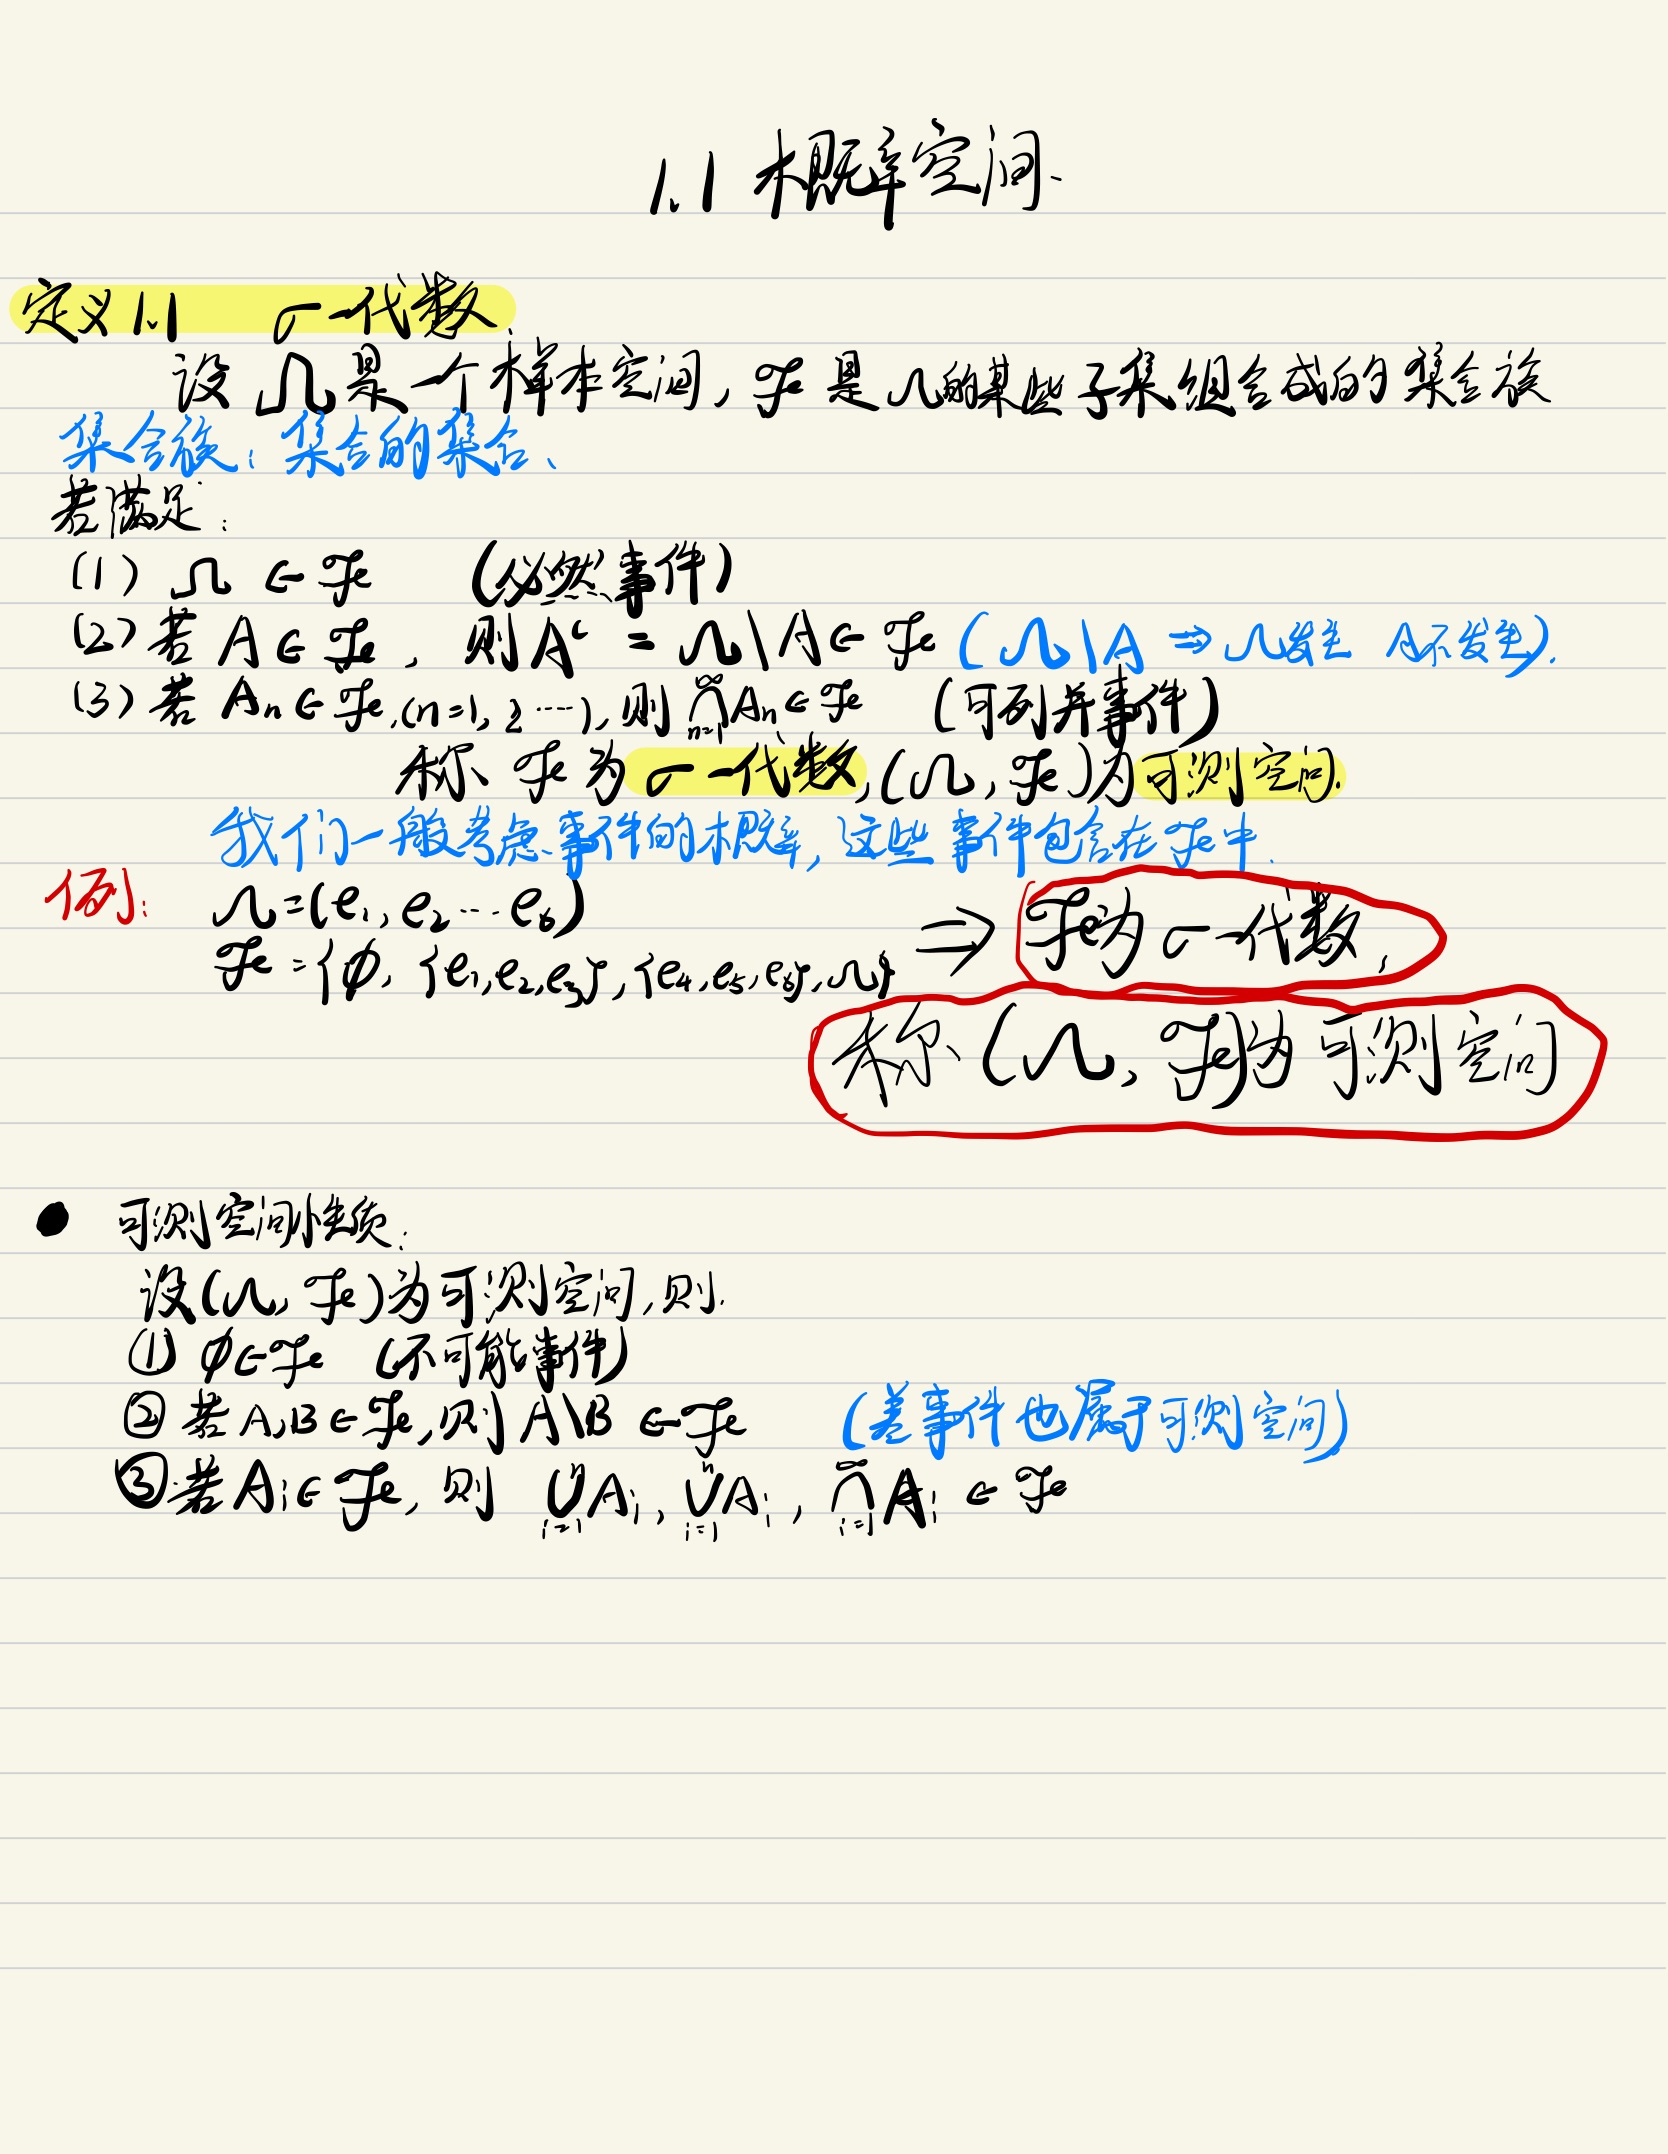 1.1 概率空间.
定义1.1 σ-代数.
设Ω是一个样本空间, ℱ是Ω的某些子集组合成的集合族
集合族:集合的集合、
若满足:
(1) Ω ∈ ℱ (必然事件)
(2) 若 A ∈ ℱ, 则 Aᶜ = Ω\A ∈ ℱ (Ω\A ⇒ Ω发生 A不发生).
(3) 若 Aₙ ∈ ℱ,(n=1, 2 ……), 则 ⋂_{n=1}^{∞} Aₙ ∈ ℱ (可列并事件)
称 ℱ 为 σ-代数, (Ω, ℱ) 为可测空间.
我们一般考虑事件的概率, 这些事件包含在ℱ中.
例: Ω=(e₁, e₂ … e₆)
ℱ={∅, {e₁,e₂,e₃}, {e₄,e₅,e₆}, Ω} ⇒ ℱ为σ-代数,
称 (Ω, ℱ)为可测空间
● 可测空间性质:
设(Ω, ℱ)为可测空间, 则.
① ∅∈ℱ (不可能事件)
② 若 A,B ∈ ℱ, 则 A\B ∈ ℱ (差事件也属于可测空间)
③ 若 Aᵢ ∈ ℱ, 则 ⋃_{i=1}^{n} Aᵢ, ⋃_{i=1}^{n} Aᵢ, ⋂_{i=1}^{∞} Aᵢ ∈ ℱ